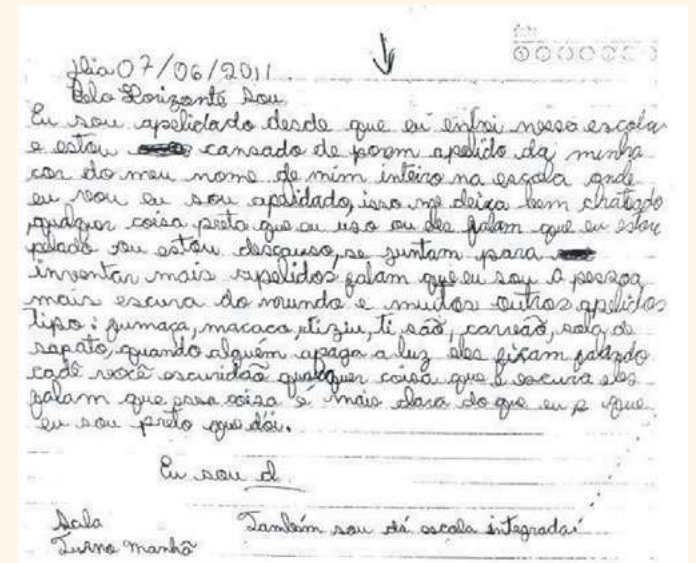 Dia 07/06/2011
Belo Horizonte Sou
Eu sou apelidado desde que eu entrei nessa escola
e estou cansado de porem apelido da minha
cor do meu nome de mim inteiro na escola onde
eu vou eu sou apelidado, isso me deixa bem chateado
qualquer coisa preta que eu uso ou eles falam que eu estou
pelado ou estou descauso, se juntam para
inventar mais apelidos falam que eu sou a pessoa
mais escura do mundo e muitos outros apelidos
tipo: fumaça, macaco, tiziu, ti são, carvão, sola de
sapato, quando alguém apaga a luz eles ficam falando
cadê você escuridão qualquer coisa que é escura eles
falam que essa coisa é mais clara do que eu e que
eu sou preto que dói.
Eu sou d
Sala
Também sou da escola integrada
Turno manhã